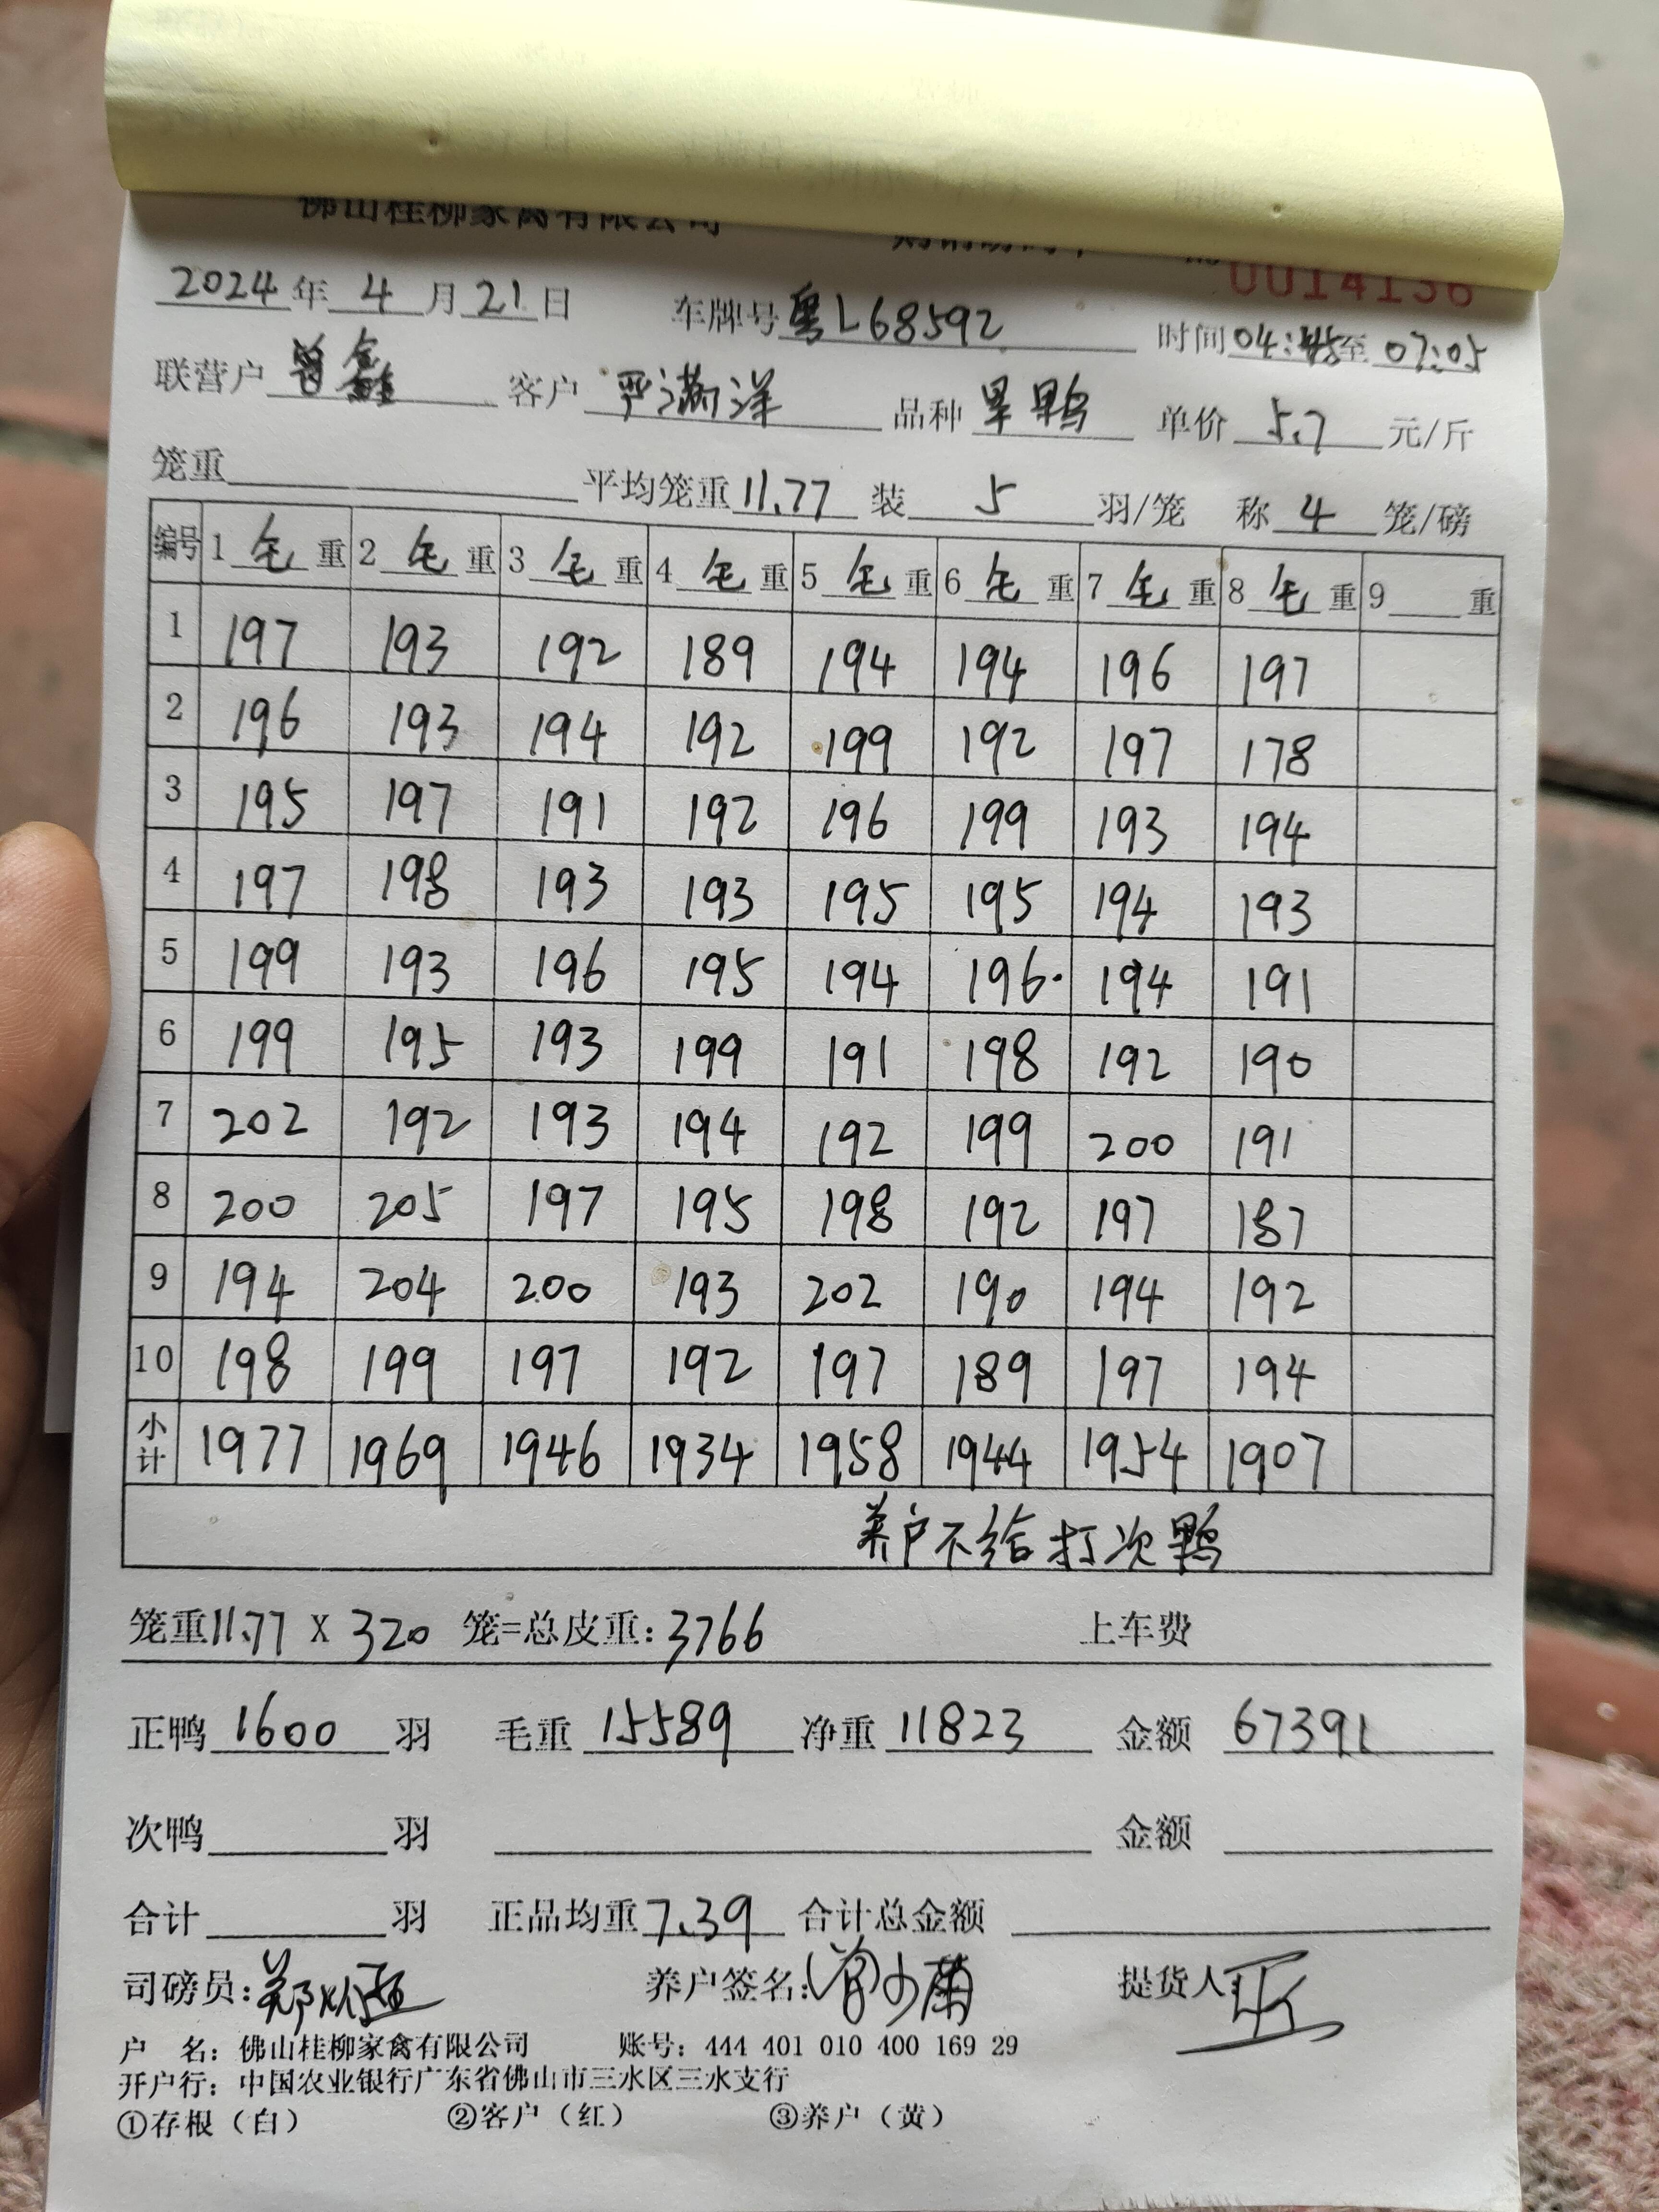 佛山桂柳家禽有限公司 购销磅码单 No 0014136
2024年4月21日 车牌号粤L68592 时间04:45至07:05
联营户 曾鑫 客户 严满洋 品种 旱鸭 单价 5.7 元/斤
笼重 平均笼重11.77 装 5 羽/笼 称 4 笼/磅
编号 1 毛 重 2 毛 重 3 毛 重 4 毛 重 5 毛 重 6 毛 重 7 毛 重 8 毛 重 9 重
1 197 193 192 189 194 194 196 197
2 196 193 194 192 199 192 197 178
3 195 197 191 192 196 199 193 194
4 197 198 193 193 195 195 194 193
5 199 193 196 195 194 196. 194 191
6 199 195 193 199 191 198 192 190
7 202 192 193 194 192 199 200 191
8 200 205 197 195 198 192 197 187
9 194 204 200 193 202 190 194 192
10 198 199 197 192 197 189 197 194
小计 1977 1969 1946 1934 1958 1944 1954 1907
养户不给打次鸭
笼重11.77 X 320 笼=总皮重:3766 上车费
正鸭 1600 羽 毛重 15589 净重 11823 金额 67391
次鸭 羽 金额
合计 羽 正品均重7.39 合计总金额
司磅员: 养户签名: 提货人:
户 名: 佛山桂柳家禽有限公司 账号: 444 401 010 400 169 29
开户行: 中国农业银行广东省佛山市三水区三水支行
①存根（白） ②客户（红） ③养户（黄）